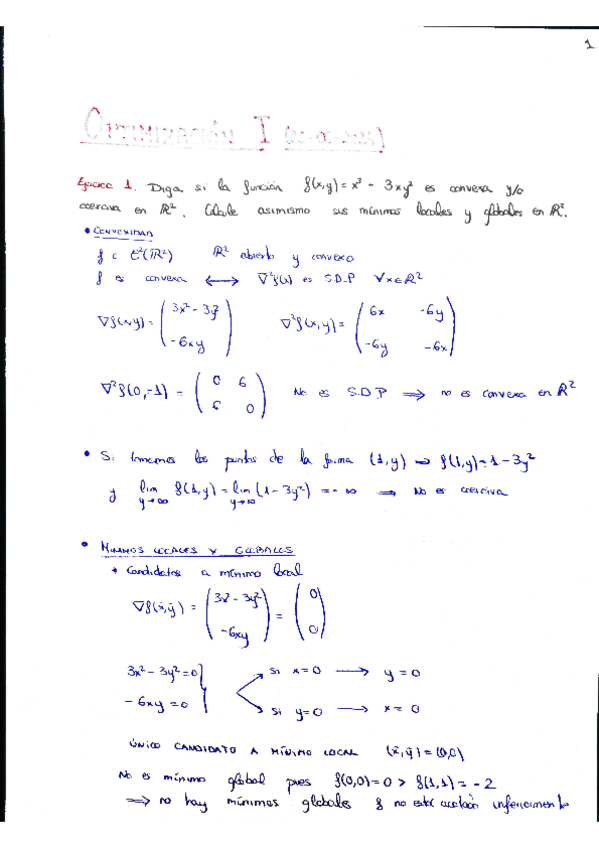 1
Optimización I
Ejercicio 1. Diga si la función f(x,y) = x³ - 3xy² es convexa y/o
coerciva en ℝ². Calcule asimismo sus mínimos locales y globales en ℝ².
• CONVEXIDAD
f ∈ C²(ℝ²) ℝ² abierto y convexo
f es convexa ⟷ ∇²f(x) es S.D.P ∀x∈ℝ²
∇f(x,y) = (3x² - 3y² ; -6xy) ∇²f(x,y) = (6x -6y ; -6y -6x)
∇²f(0,-1) = (0 6 ; 6 0) No es S.D.P ⟹ no es convexa en ℝ²
• Si tomamos los puntos de la forma (1,y) ⟹ f(1,y) = 1 - 3y²
y lim y→∞ f(1,y) = lim y→∞ (1 - 3y²) = -∞ ⟹ No es coerciva
• MÍNIMOS LOCALES Y GLOBALES
+ Candidatos a mínimo local
∇f(x̄,ȳ) = (3x² - 3y² ; -6xy) = (0 ; 0)
3x² - 3y² = 0 Si x = 0 ⟶ y = 0
-6xy = 0 Si y = 0 ⟶ x = 0
ÚNICO CANDIDATO A MÍNIMO LOCAL (x̄,ȳ) = (0,0)
No es mínimo global pues f(0,0) = 0 > f(1,1) = -2
⟹ no hay mínimos globales f no está acotada inferiormente